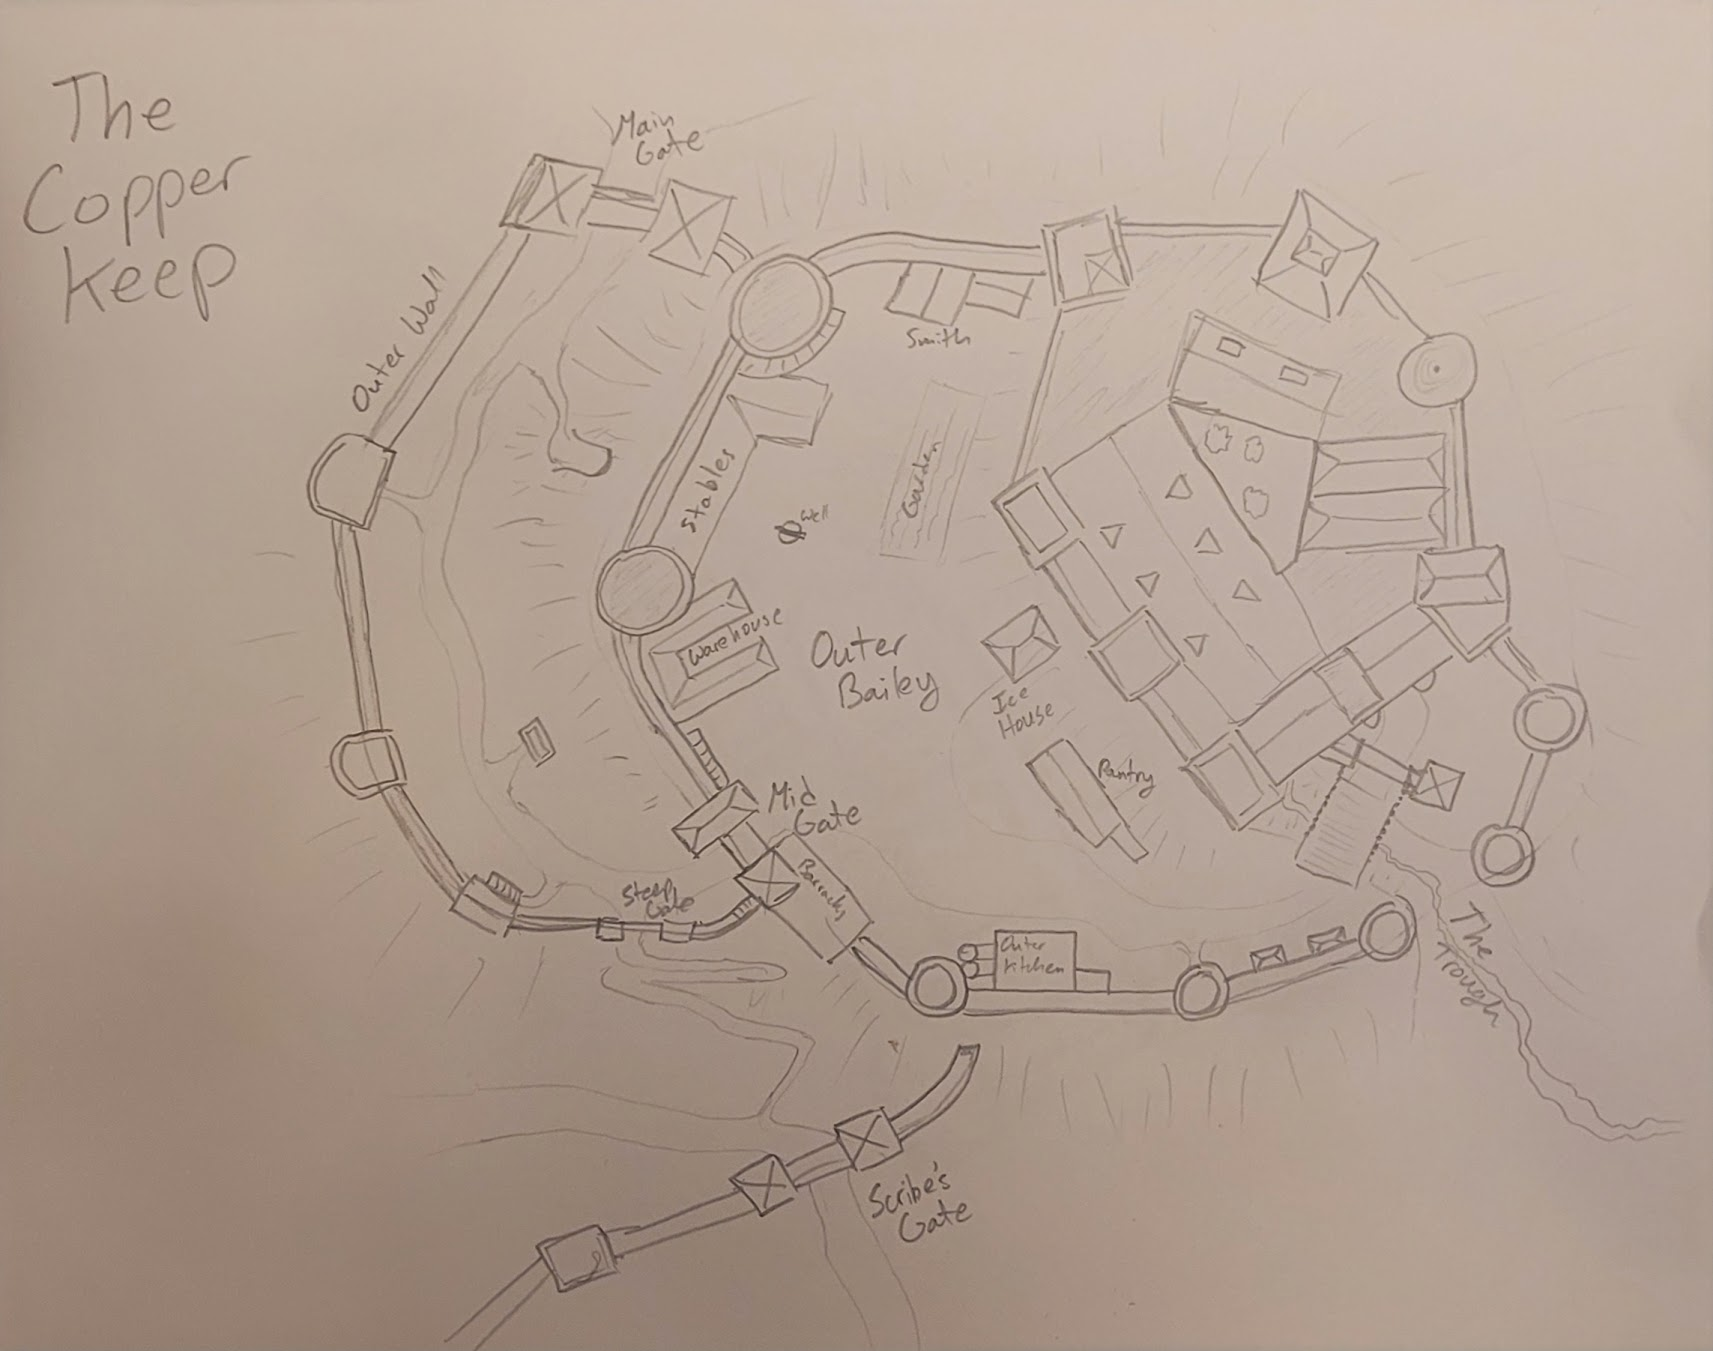 The
Copper
Keep
Main
Gate
Outer Wall
Smith
Stables
Garden
Well
Warehouse
Outer
Bailey
Ice
House
Pantry
Mid
Gate
Barracks
Steep
Gate
Outer
Kitchen
The
Trough
Scribe's
Gate